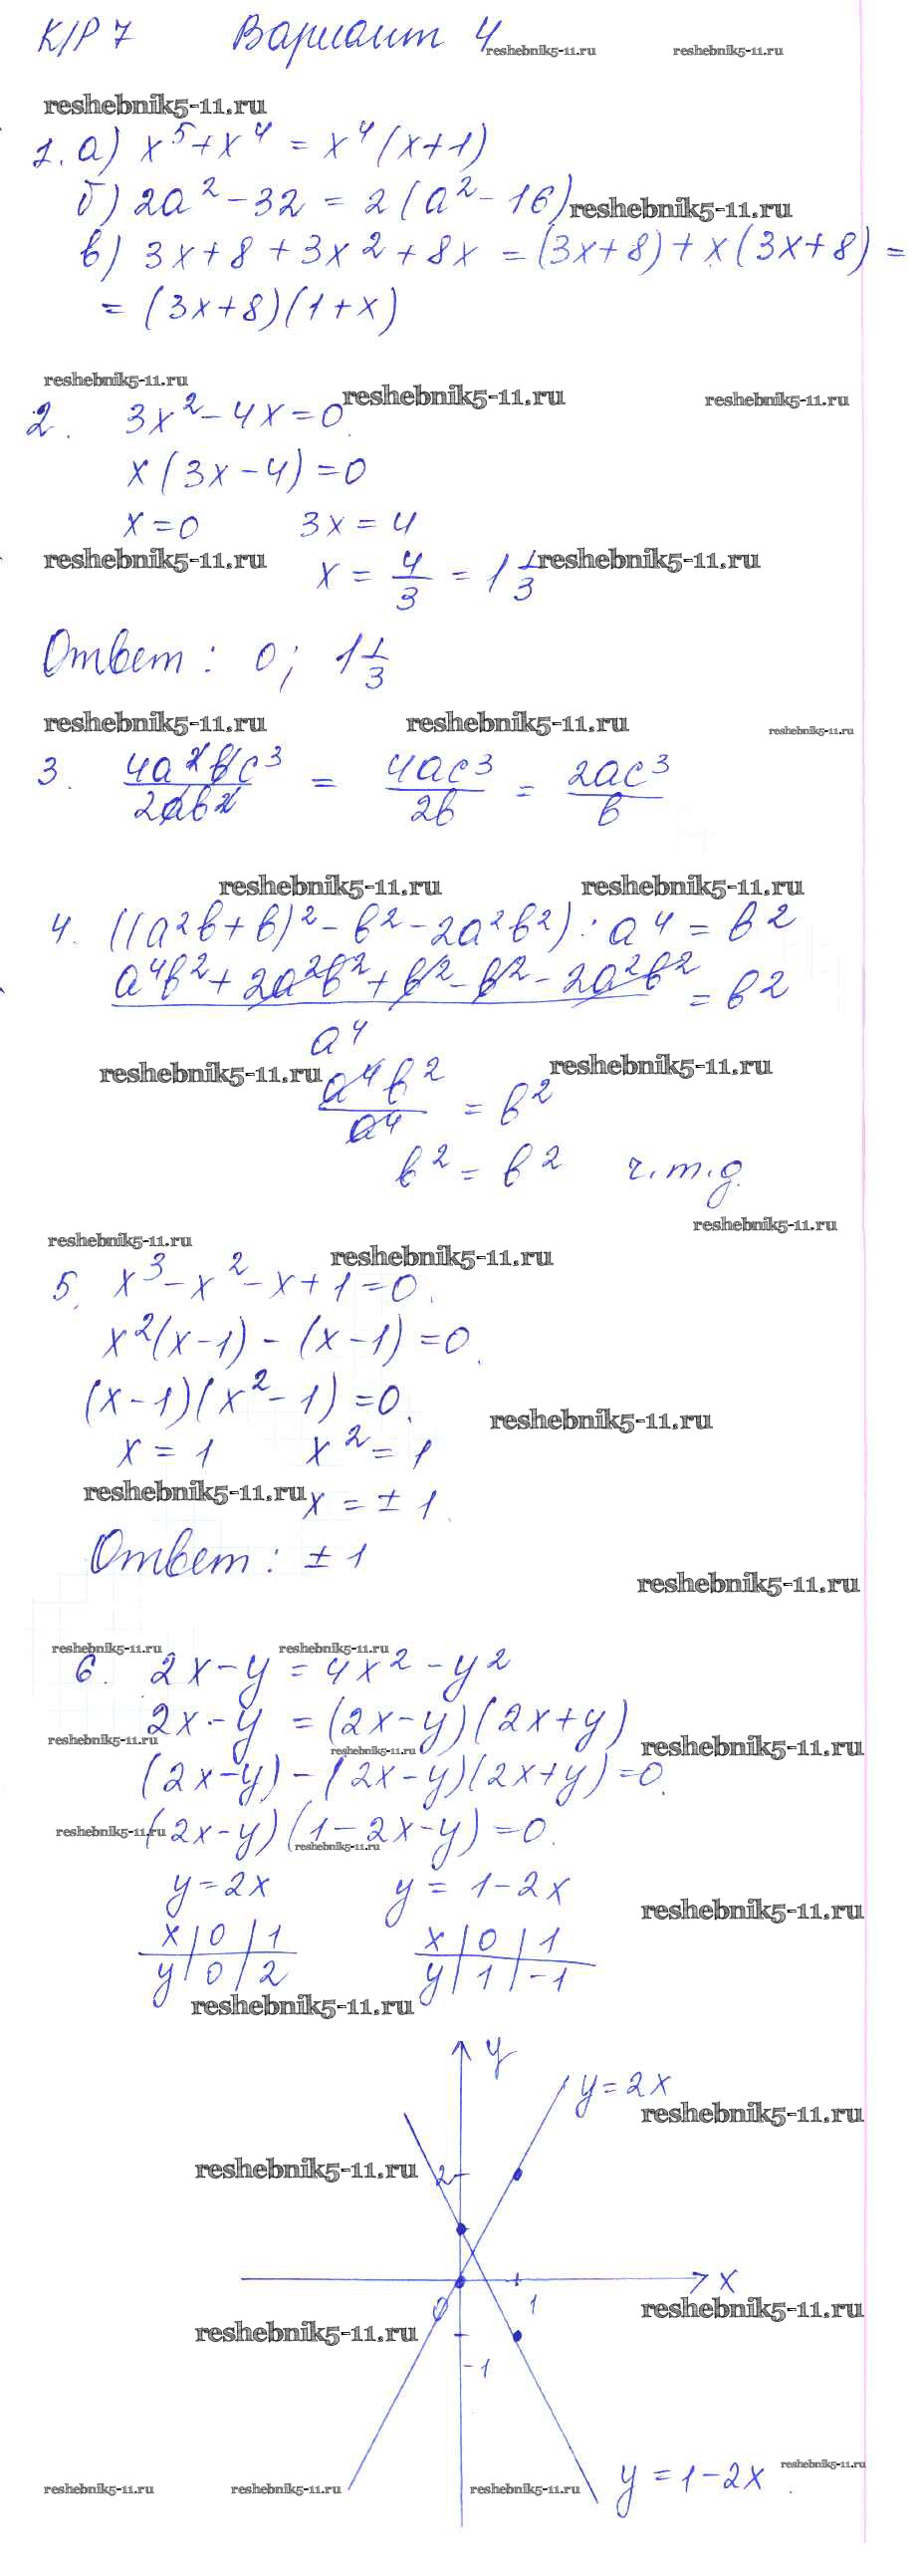 К/Р 7 Вариант 4
reshebnik5-11.ru reshebnik5-11.ru
reshebnik5-11.ru
1. а) x⁵+x⁴ = x⁴(x+1)
б) 2a² - 32 = 2(a² - 16) reshebnik5-11.ru
в) 3x+8+3x²+8x = (3x+8)+x(3x+8) =
= (3x+8)(1+x)
reshebnik5-11.ru reshebnik5-11.ru reshebnik5-11.ru
2. 3x² - 4x = 0
x(3x-4) = 0
x = 0 3x = 4
reshebnik5-11.ru reshebnik5-11.ru
x = 4/3 = 1 1/3
Ответ: 0; 1 1/3
reshebnik5-11.ru reshebnik5-11.ru reshebnik5-11.ru
3. 4a²bc³/2ab² = 4ac³/2b = 2ac³/b
reshebnik5-11.ru reshebnik5-11.ru
4. ((a²b+b)² - b² - 2a²b²) : a⁴ = b²
a⁴b² + 2a²b² + b² - b² - 2a²b² / a⁴ = b²
reshebnik5-11.ru reshebnik5-11.ru
a⁴b²/a⁴ = b²
b² = b² ч.т.д.
reshebnik5-11.ru
reshebnik5-11.ru reshebnik5-11.ru
5. x³ - x² - x + 1 = 0.
x²(x-1) - (x-1) = 0.
(x-1)(x²-1) = 0.
reshebnik5-11.ru
x = 1 x² = 1
reshebnik5-11.ru x = ± 1.
Ответ: ± 1
reshebnik5-11.ru
reshebnik5-11.ru reshebnik5-11.ru
6. 2x-y = 4x² - y²
2x-y = (2x-y)(2x+y)
reshebnik5-11.ru reshebnik5-11.ru reshebnik5-11.ru
(2x-y) - (2x-y)(2x+y) = 0.
(2x-y)(1-2x-y) = 0.
reshebnik5-11.ru reshebnik5-11.ru
y = 2x y = 1-2x
reshebnik5-11.ru
x 0 1 x 0 1
y 0 2 y 1 -1
reshebnik5-11.ru
y
y = 2x
reshebnik5-11.ru
reshebnik5-11.ru 2
x
0 1
reshebnik5-11.ru
reshebnik5-11.ru
-1
y = 1-2x.
reshebnik5-11.ru reshebnik5-11.ru reshebnik5-11.ru reshebnik5-11.ru